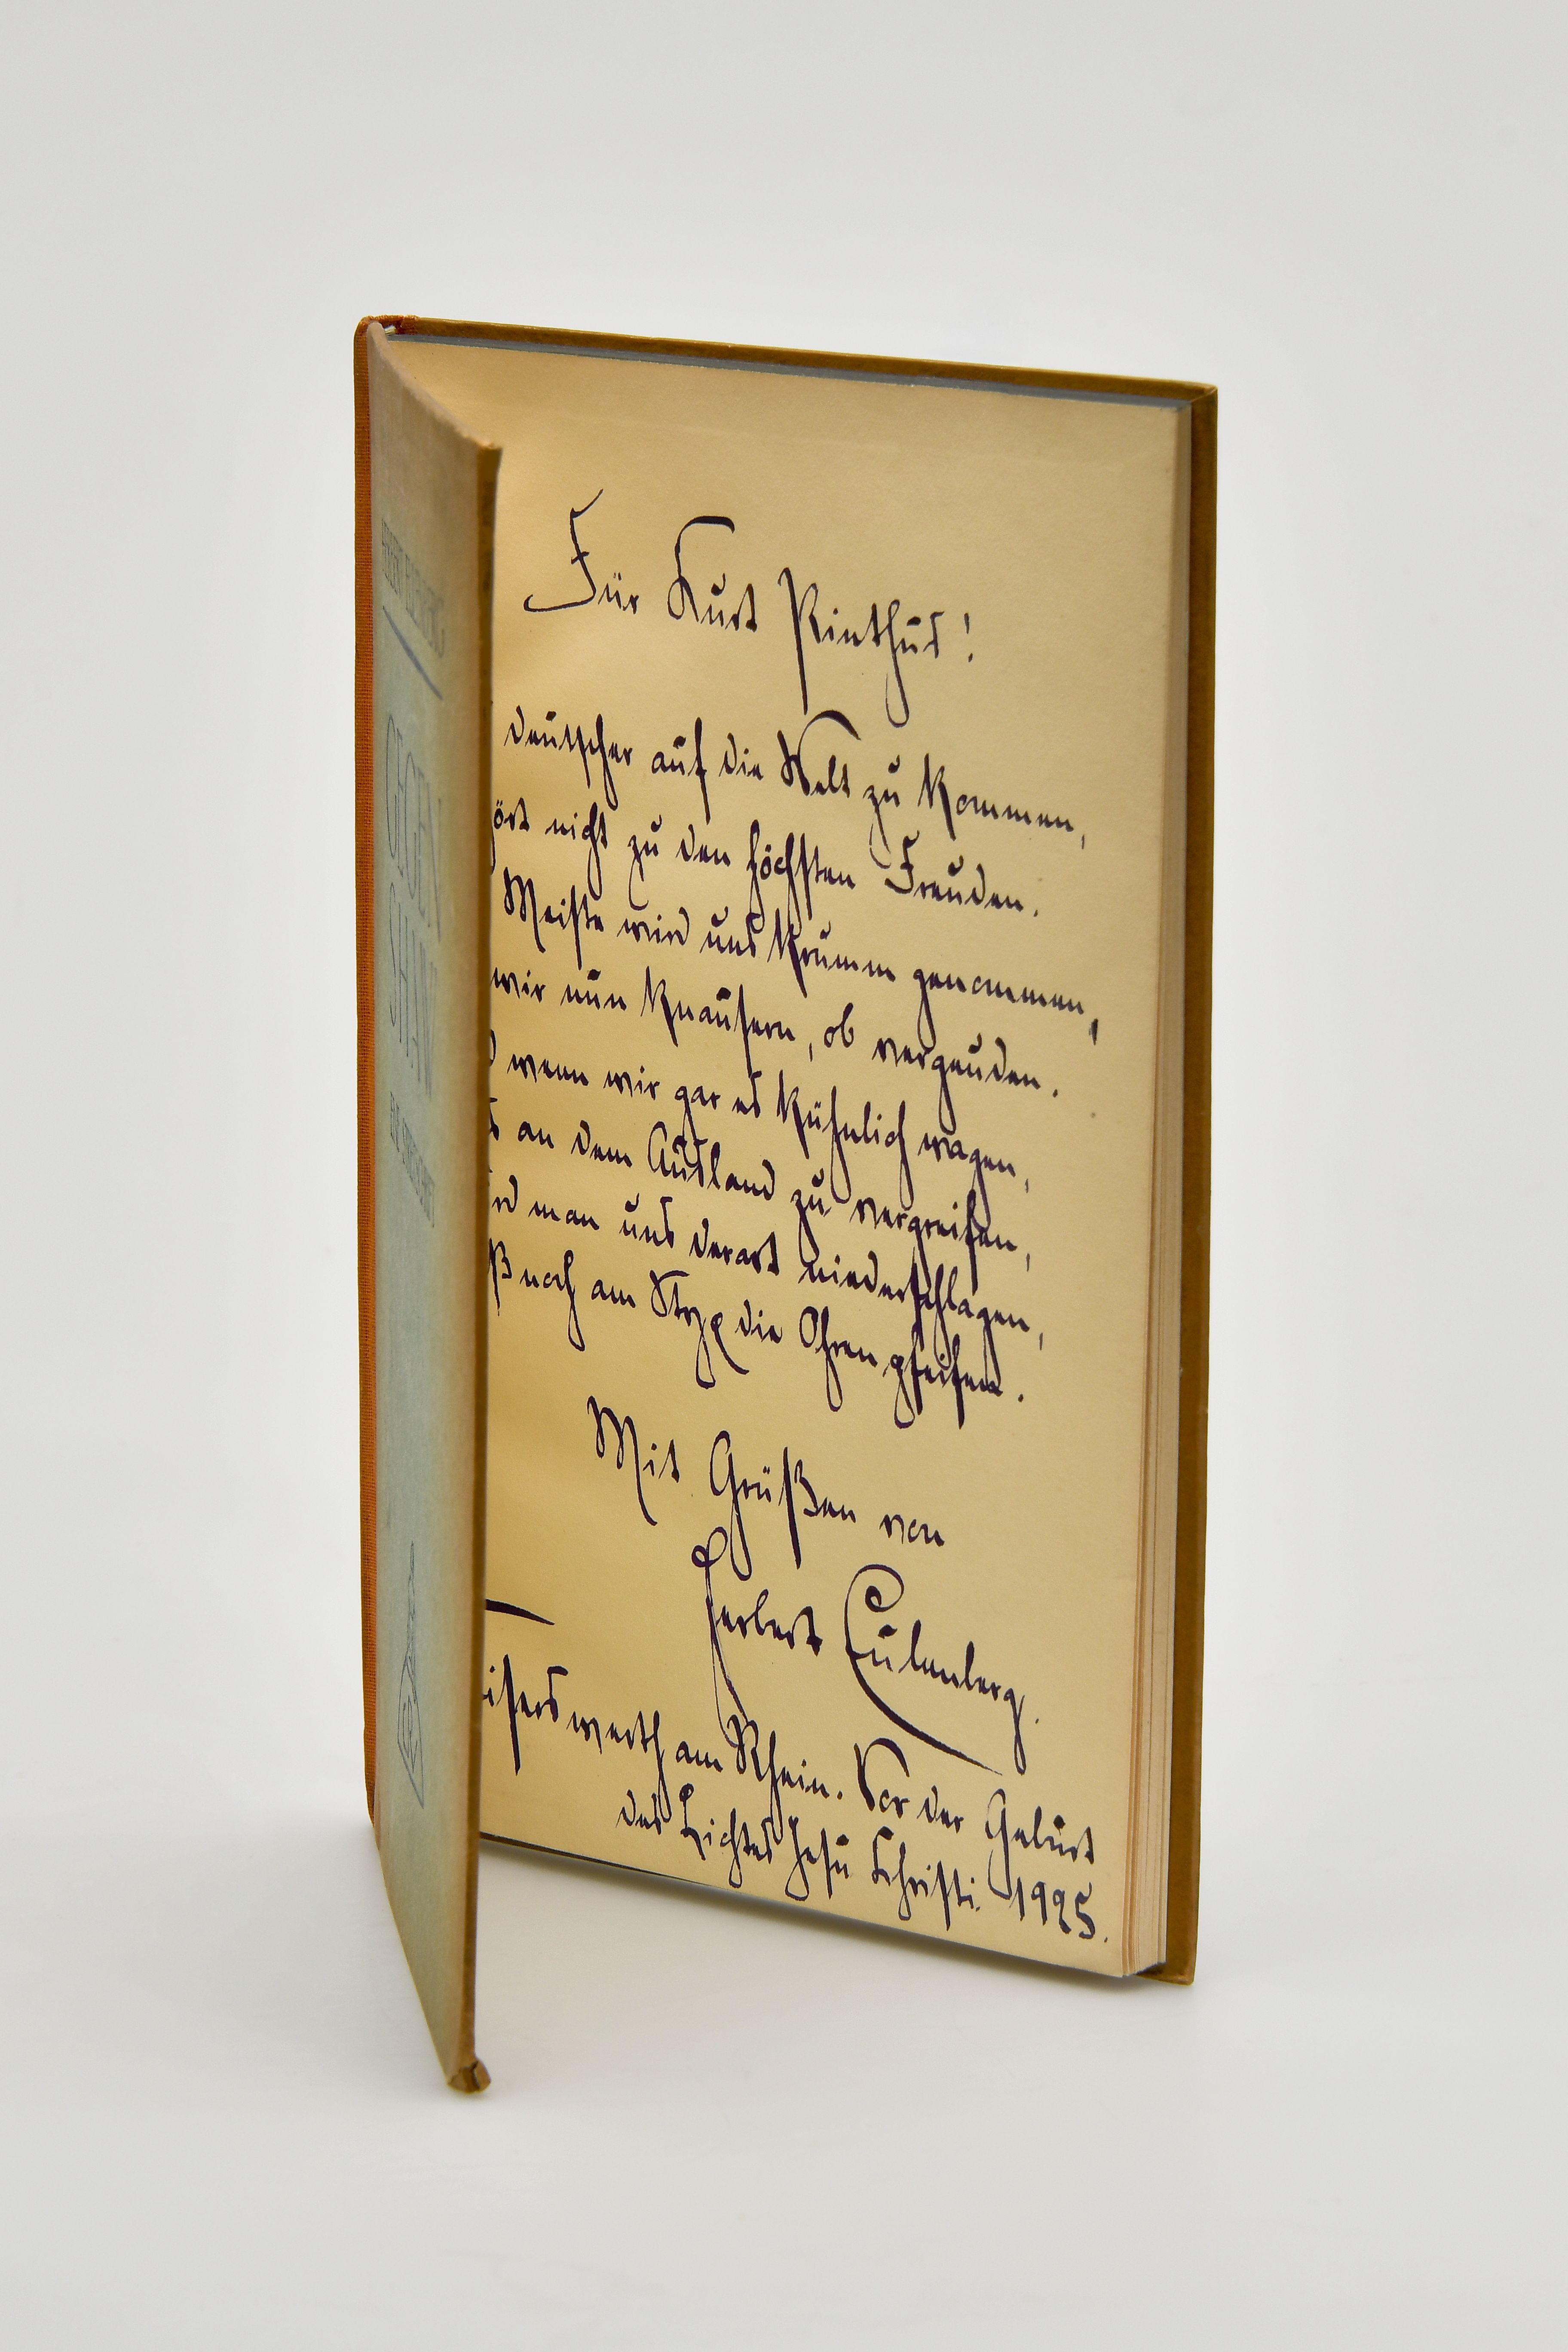 HERBERT EULENBERG
GEGEN
SHAW
Für Kurt Pinthus!
deutscher auf die Welt zu kommen,
ört nicht zu den höchsten Freuden.
Meiste wird uns krumm genommen,
wir nun knausern, ob vergeuden.
d wenn wir gar es kühnlich wagen,
s an dem Ausland zu vergreifen,
rd man uns derart niederschlagen,
ß noch am Styx die Ohren pfeifen.
Mit Grüßen von
Herbert Eulenberg.
iserswerth am Rhein. Vor der Geburt
des Lichtes Jesu Christi. 1925.